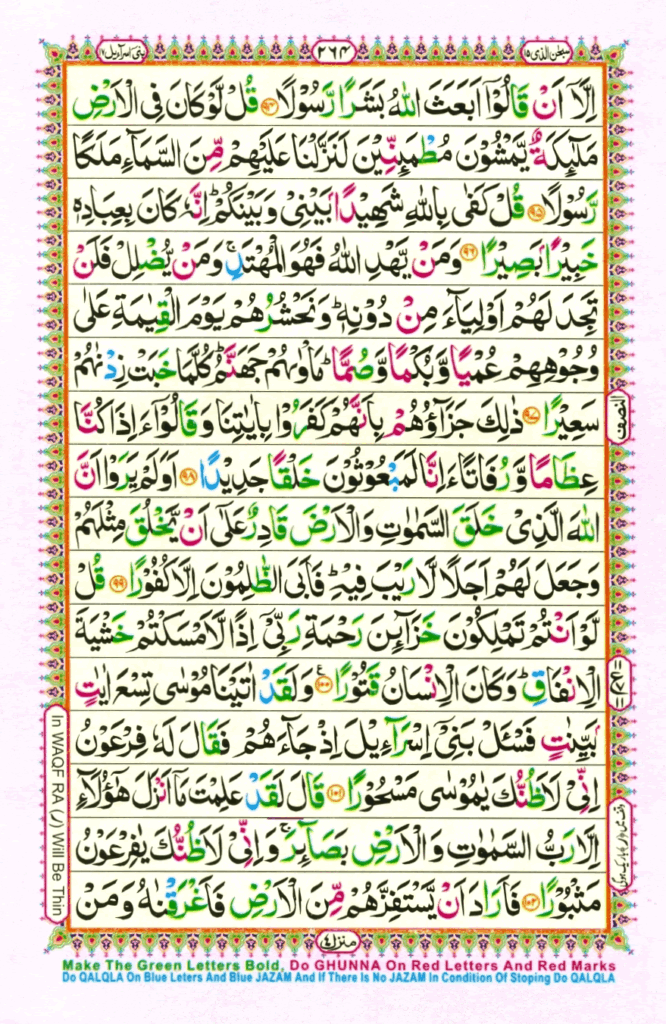 سبحٰن الذی ۱۵
۲۶۴
بنیٓ اسرآءیل ۱۷
اِلَّاۤ اَنْ قَالُوْۤا اَبَعَثَ اللّٰهُ بَشَرًا رَّسُوْلًا ﴿۹۴﴾ قُلْ لَّوْ كَانَ فِی الْاَرْضِ
مَلٰٓىِٕكَةٌ یَّمْشُوْنَ مُطْمَىِٕنِّیْنَ لَنَزَّلْنَا عَلَیْهِمْ مِّنَ السَّمَآءِ مَلَكًا
رَّسُوْلًا ﴿۹۵﴾ قُلْ كَفٰی بِاللّٰهِ شَهِیْدًۢا بَیْنِیْ وَ بَیْنَكُمْ ؕ اِنَّهٗ كَانَ بِعِبَادِهٖ
خَبِیْرًۢا بَصِیْرًا ﴿۹۶﴾ وَ مَنْ یَّهْدِ اللّٰهُ فَهُوَ الْمُهْتَدِ ۚ وَ مَنْ یُّضْلِلْ فَلَنْ
تَجِدَ لَهُمْ اَوْلِیَآءَ مِنْ دُوْنِهٖ ؕ وَ نَحْشُرُهُمْ یَوْمَ الْقِیٰمَةِ عَلٰی
وُجُوْهِهِمْ عُمْیًا وَّ بُكْمًا وَّ صُمًّا ؕ مَاْوٰىهُمْ جَهَنَّمُ ؕ كُلَّمَا خَبَتْ زِدْنٰهُمْ
سَعِیْرًا ﴿۹۷﴾ ذٰلِكَ جَزَآؤُهُمْ بِاَنَّهُمْ كَفَرُوْا بِاٰیٰتِنَا وَ قَالُوْۤا ءَاِذَا كُنَّا
النصف
عِظَامًا وَّ رُفَاتًا ءَاِنَّا لَمَبْعُوْثُوْنَ خَلْقًا جَدِیْدًا ﴿۹۸﴾ اَوَ لَمْ یَرَوْا اَنَّ
اللّٰهَ الَّذِیْ خَلَقَ السَّمٰوٰتِ وَ الْاَرْضَ قَادِرٌ عَلٰۤی اَنْ یَّخْلُقَ مِثْلَهُمْ
وَ جَعَلَ لَهُمْ اَجَلًا لَّا رَیْبَ فِیْهِ ؕ فَاَبَی الظّٰلِمُوْنَ اِلَّا كُفُوْرًا ﴿۹۹﴾ قُلْ
لَّوْ اَنْتُمْ تَمْلِكُوْنَ خَزَآىِٕنَ رَحْمَةِ رَبِّیْۤ اِذًا لَّاَمْسَكْتُمْ خَشْیَةَ
الْاِنْفَاقِ ؕ وَ كَانَ الْاِنْسَانُ قَتُوْرًا ﴿۱۰۰﴾ وَ لَقَدْ اٰتَیْنَا مُوْسٰی تِسْعَ اٰیٰتٍۭ
بَیِّنٰتٍ فَسْـَٔلْ بَنِیْۤ اِسْرَآءِیْلَ اِذْ جَآءَهُمْ فَقَالَ لَهٗ فِرْعَوْنُ
اِنِّیْ لَاَظُنُّكَ یٰمُوْسٰی مَسْحُوْرًا ﴿۱۰۱﴾ قَالَ لَقَدْ عَلِمْتَ مَاۤ اَنْزَلَ هٰۤؤُلَآءِ
اِلَّا رَبُّ السَّمٰوٰتِ وَ الْاَرْضِ بَصَآىِٕرَ ۚ وَ اِنِّیْ لَاَظُنُّكَ یٰفِرْعَوْنُ
مَثْبُوْرًا ﴿۱۰۲﴾ فَاَرَادَ اَنْ یَّسْتَفِزَّهُمْ مِّنَ الْاَرْضِ فَاَغْرَقْنٰهُ وَ مَنْ
In WAQF RA (ر) Will Be Thin
منزل ۴
Make The Green Letters Bold, Do GHUNNA On Red Letters And Red Marks
Do QALQLA On Blue Leters And Blue JAZAM And If There Is No JAZAM In Condition Of Stoping Do QALQLA